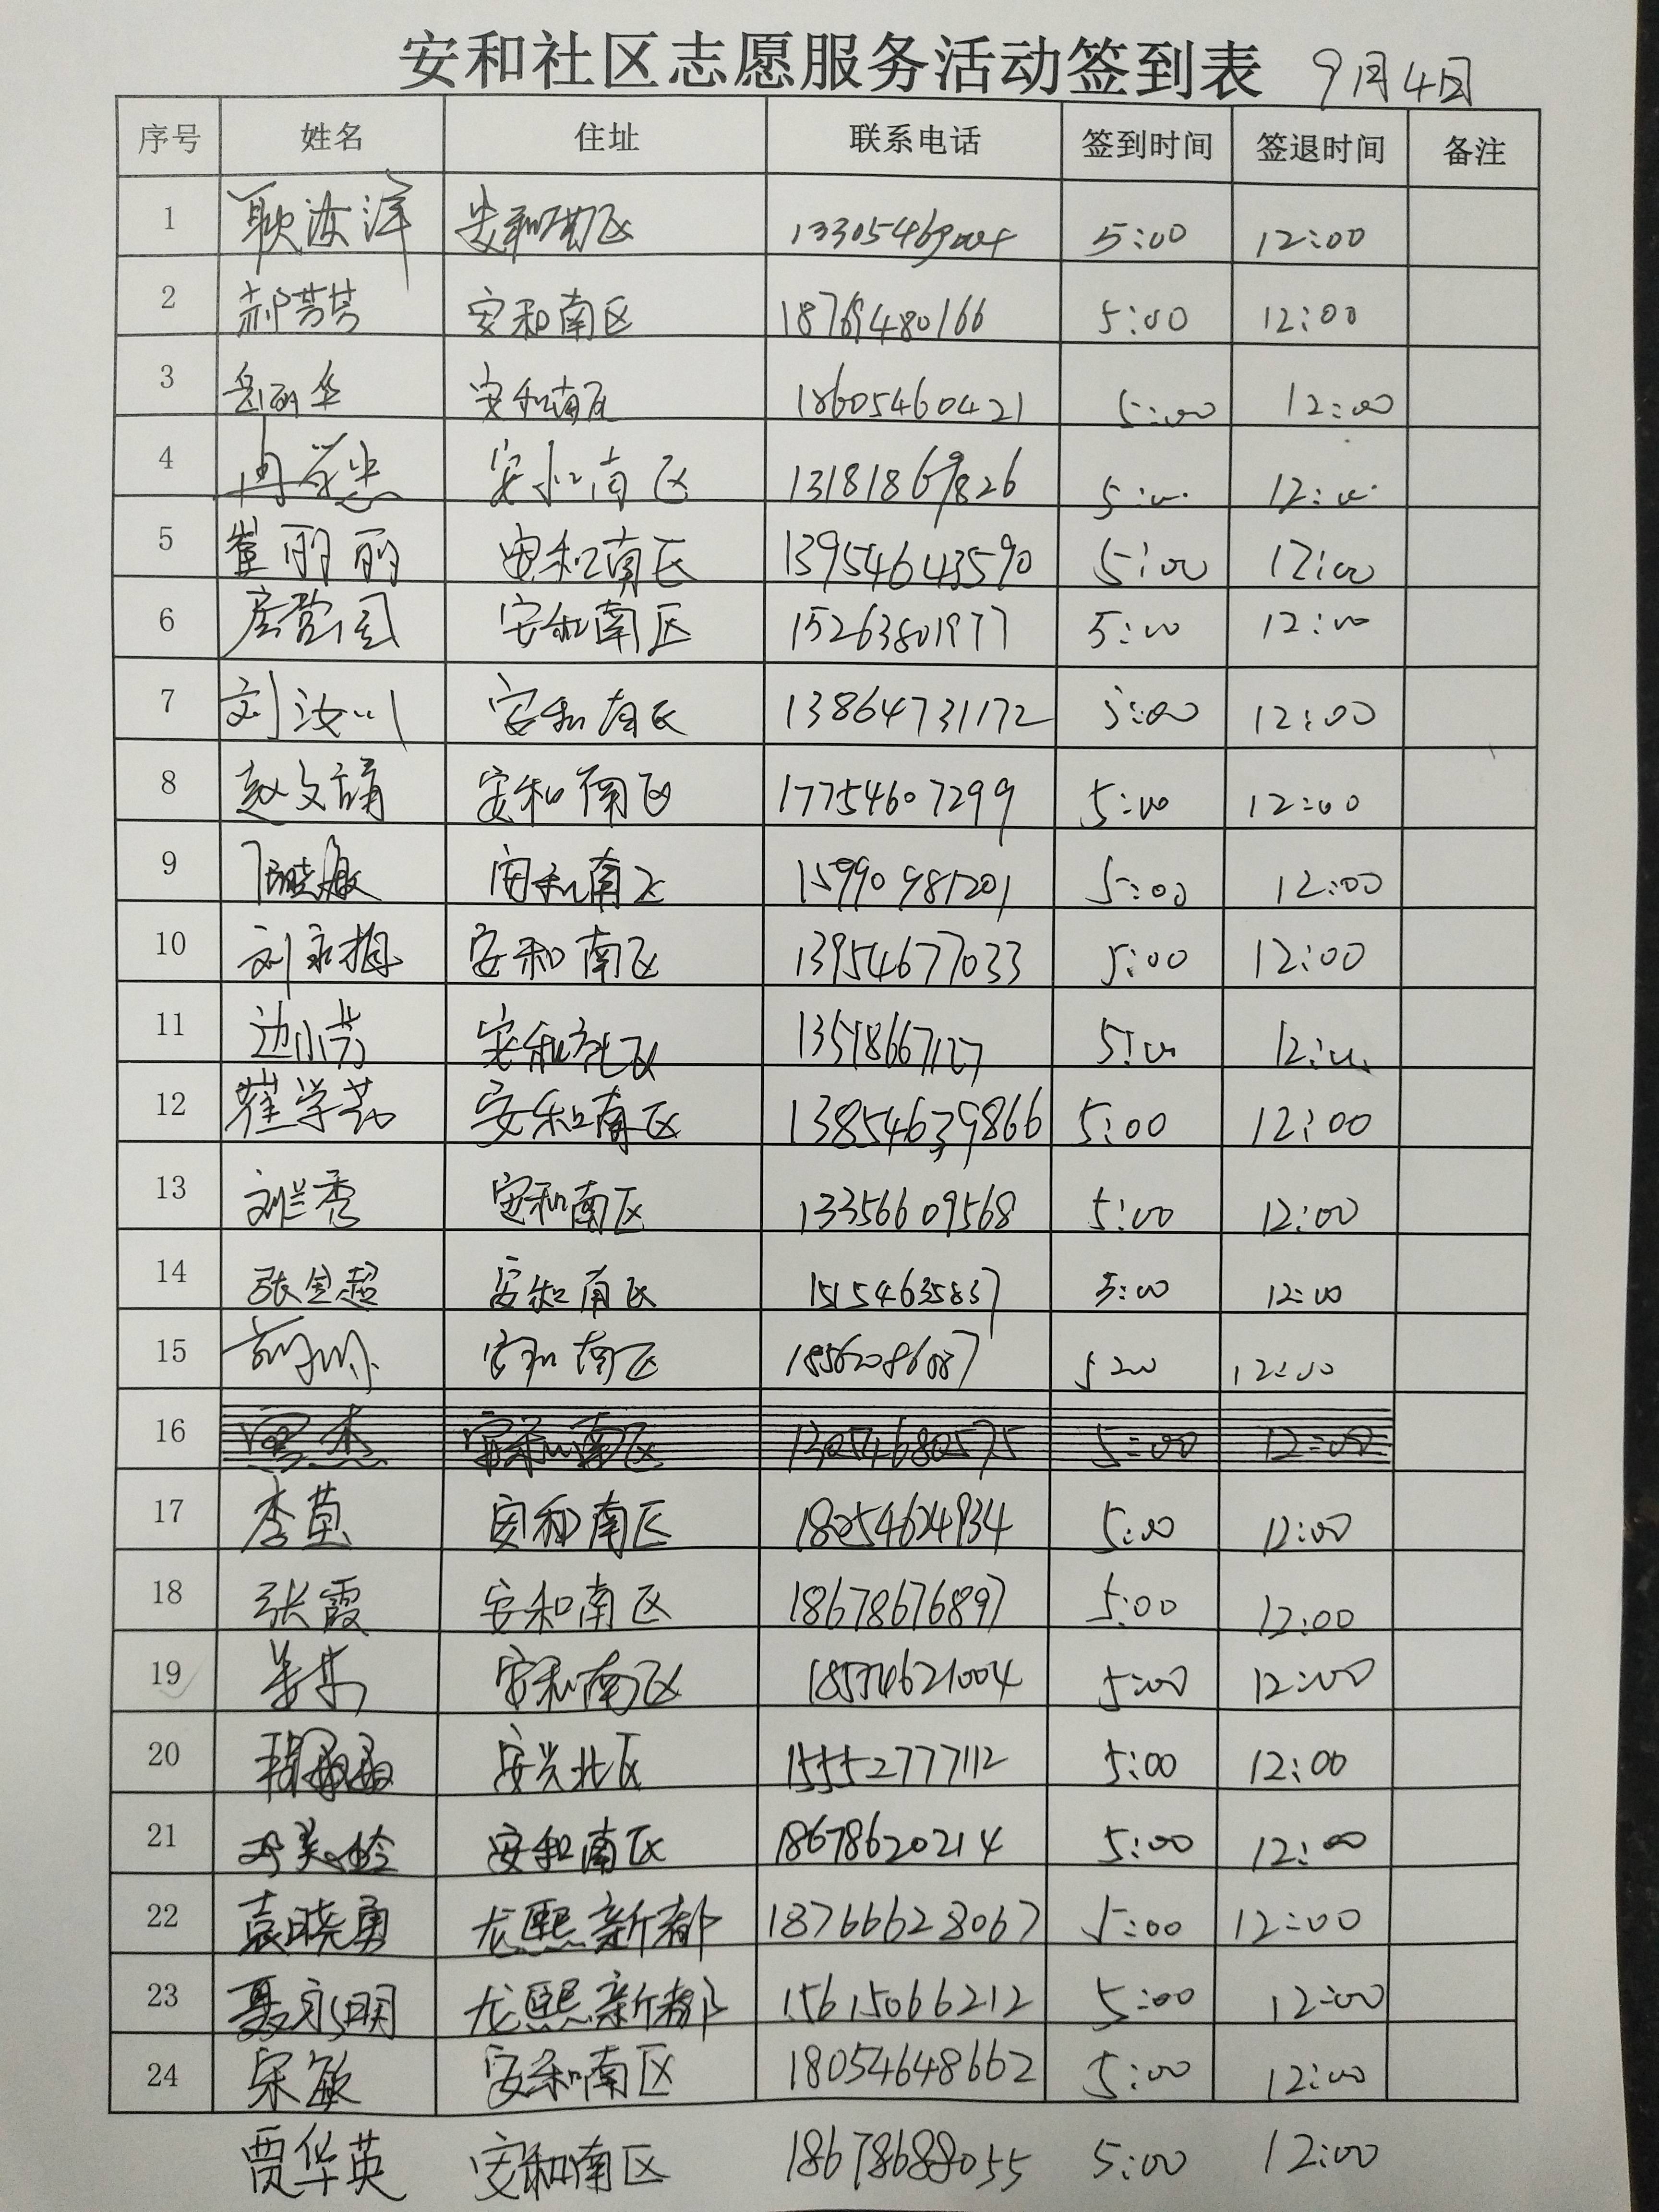 安和社区志愿服务活动签到表 9月4日
序号 姓名 住址 联系电话 签到时间 签退时间 备注
1 耿 洋 安和南区 13305469004 5:00 12:00
2 郝芳芳 安和南区 18769480166 5:00 12:00
3 岳丽华 安和南区 18605460421 5:00 12:00
4 安和南区 13181869826 5:00 12:00
5 崔丽丽 安和南区 13954643590 5:00 12:00
6 安和南区 15263801977 5:00 12:00
7 刘汝川 安和南区 13864731172 5:00 12:00
8 赵文 安和南区 17754607299 5:00 12:00
9 安和南区 15990981201 5:00 12:00
10 刘永梅 安和南区 13954677033 5:00 12:00
11 边小芳 安和 区 5:00 12:00
12 崔学芬 安和南区 13854639866 5:00 12:00
13 刘兰秀 安和南区 13356609568 5:00 12:00
14 张金超 安和南区 15154635837 5:00 12:00
15 安和南区 18562086087 5:00 12:00
16 安和南区 5:00 12:00
17 李 安和南区 18254624934 5:00 12:00
18 张霞 安和南区 18678676897 5:00 12:00
19 安和南区 5:00 12:00
20 安兴北区 15552777112 5:00 12:00
21 安和南区 18678620214 5:00 12:00
22 袁晓勇 龙熙新都 18766628067 5:00 12:00
23 聂永明 龙熙新都 15615066212 5:00 12:00
24 宋敏 安和南区 18054648662 5:00 12:00
贾华英 安和南区 18678688055 5:00 12:00